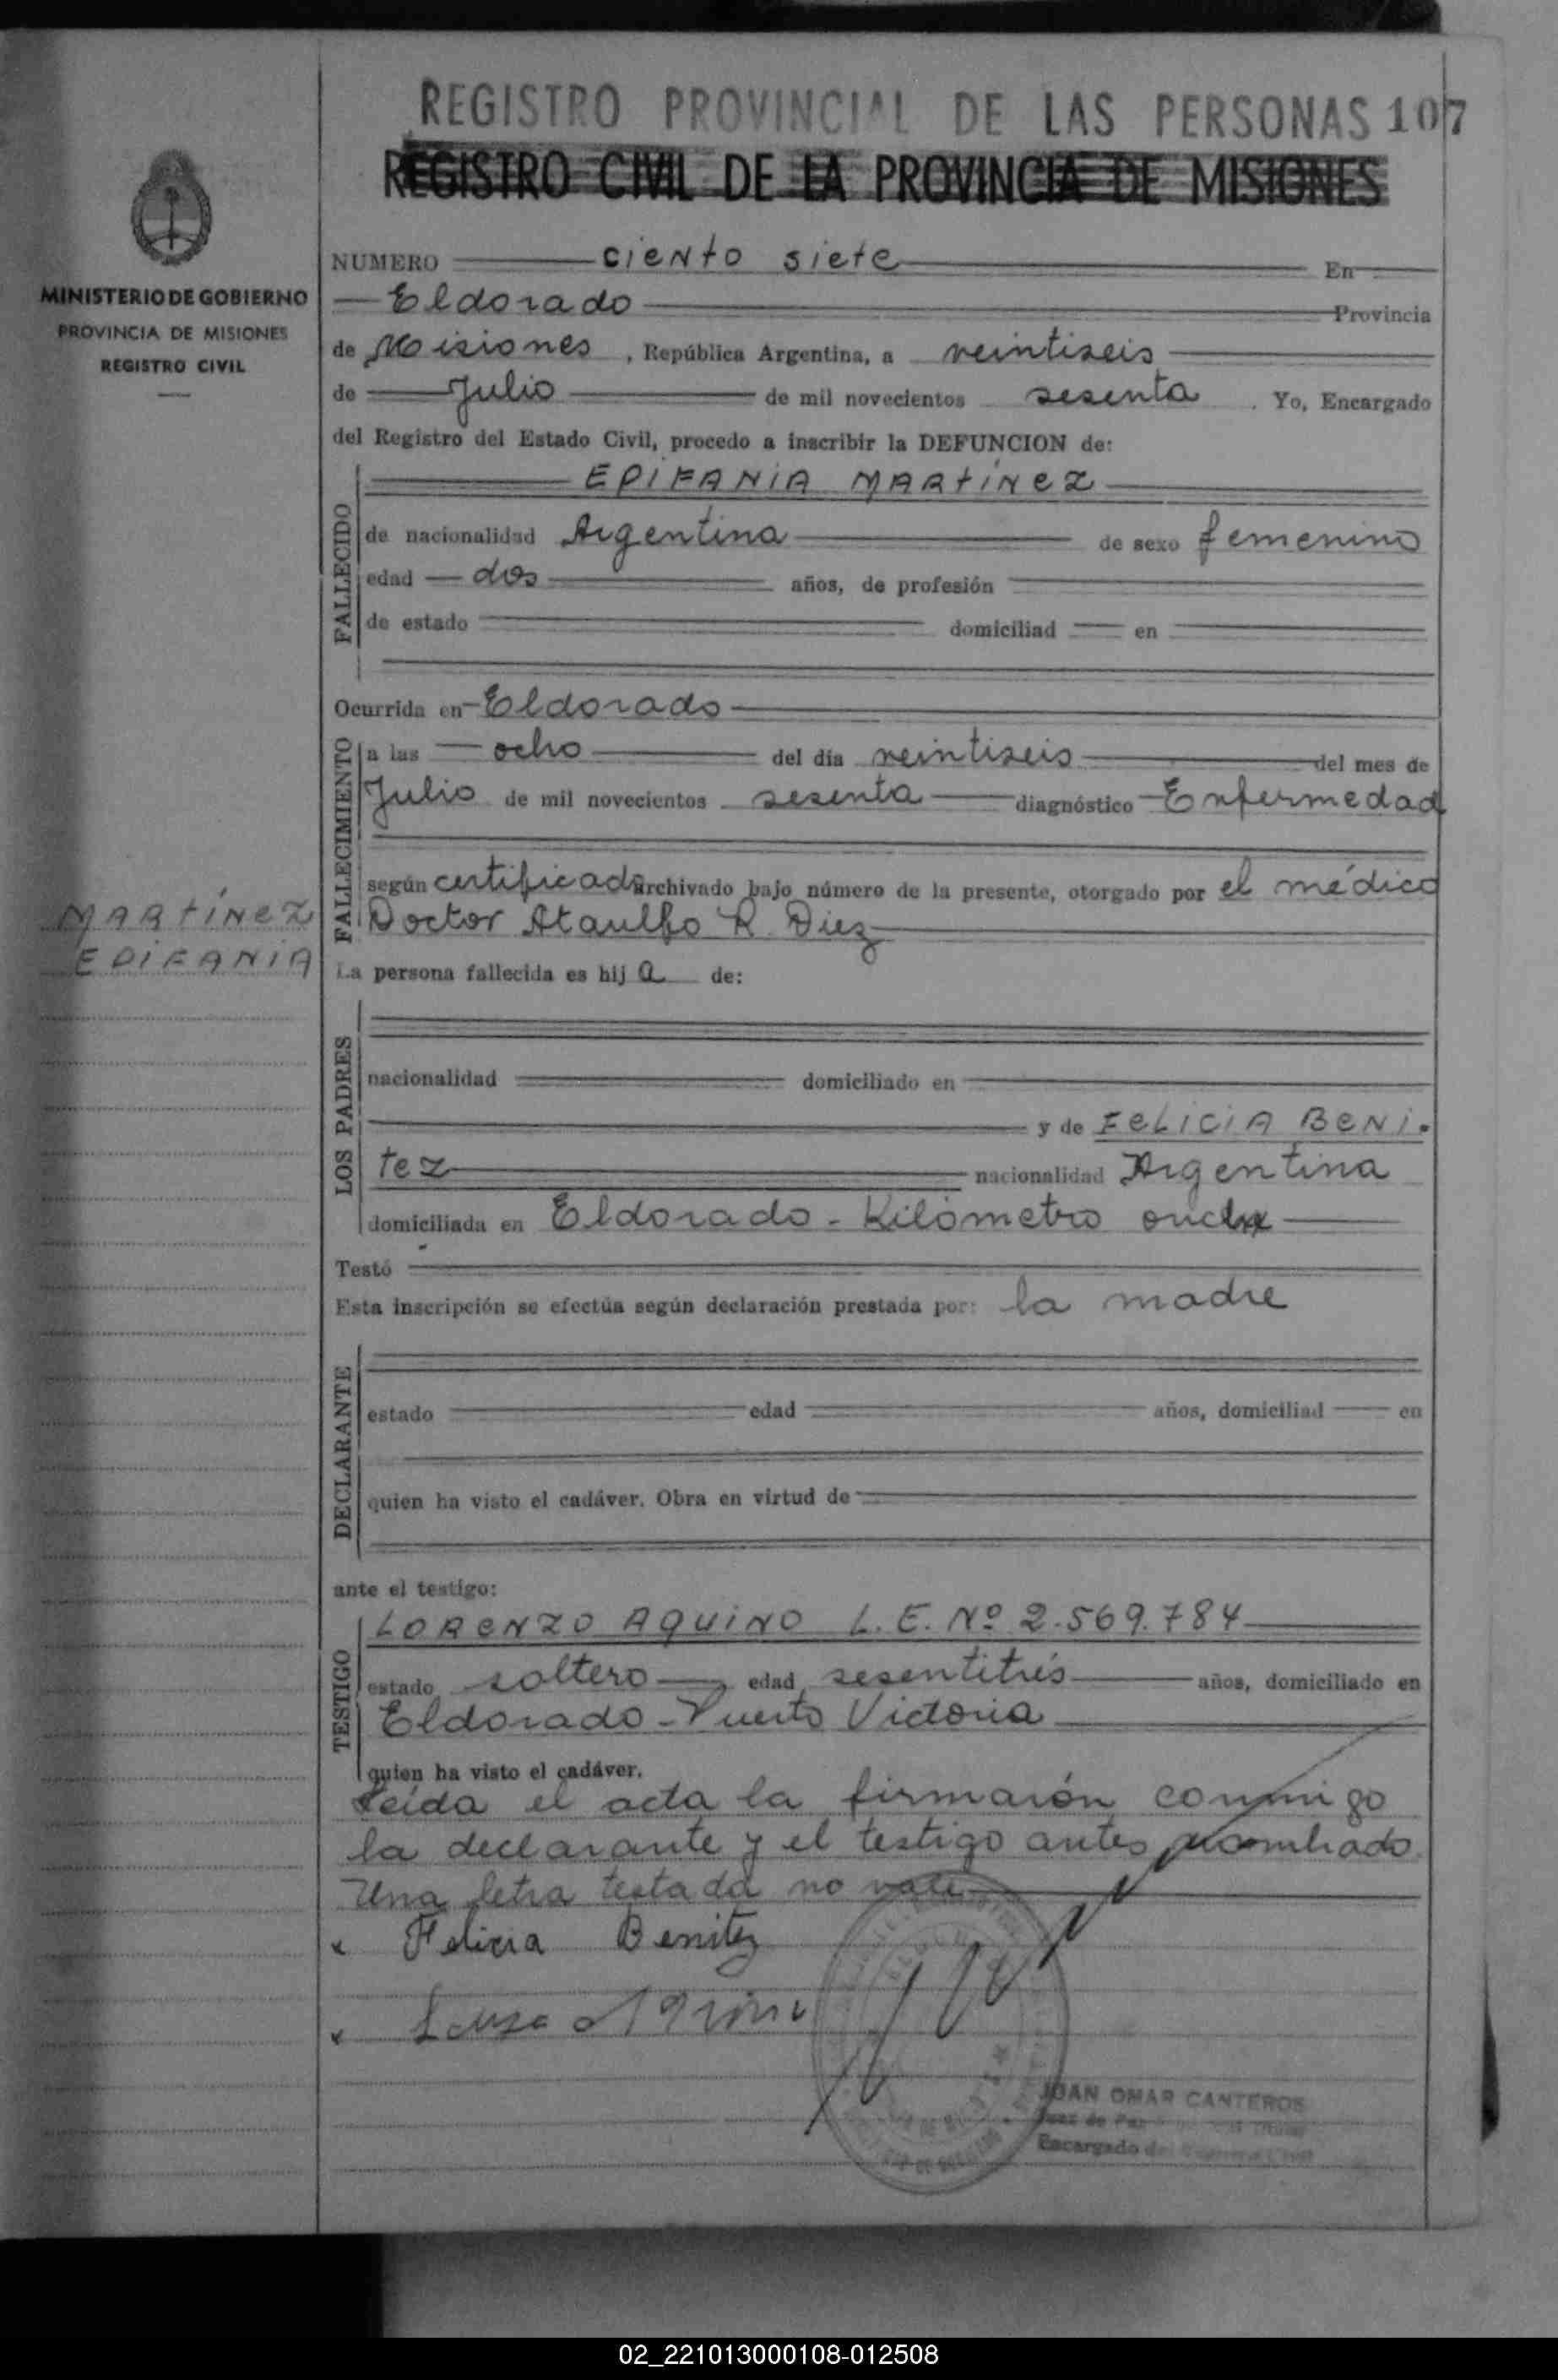 REGISTRO PROVINCIAL DE LAS PERSONAS 107
REGISTRO CIVIL DE LA PROVINCIA DE MISIONES
MINISTERIO DE GOBIERNO
PROVINCIA DE MISIONES
REGISTRO CIVIL
NUMERO ciento siete En
Eldorado Provincia
de Misiones, República Argentina, a veintiseis
de Julio de mil novecientos sesenta. Yo, Encargado
del Registro del Estado Civil, procedo a inscribir la DEFUNCION de:
FALLECIDO
EPIFANIA MARTíNEZ
de nacionalidad Argentina de sexo femenino
edad dos años, de profesión
de estado domiciliad en
Ocurrida en Eldorado
FALLECIMIENTO
a las ocho del día veintiseis del mes de
Julio de mil novecientos sesenta diagnóstico Enfermedad
según certificado archivado bajo número de la presente, otorgado por el médico
Doctor Ataulfo R. Diez
MARTíNEZ
EPIFANIA
La persona fallecida es hij a de:
LOS PADRES
nacionalidad domiciliado en
y de FELICIA BENI-
tez nacionalidad Argentina
domiciliada en Eldorado - Kilómetro once
Testó
Esta inscripción se efectúa según declaración prestada por: la madre
DECLARANTE
estado edad años, domiciliad en
quien ha visto el cadáver. Obra en virtud de
ante el testigo:
TESTIGO
LORENZO AQUINO L.E. Nº 2.569.784
estado soltero edad sesentitrés años, domiciliado en
Eldorado - Puerto Victoria
quien ha visto el cadáver.
Leída el acta la firmarón conmigo
la declarante y el testigo antes nombrado.
Una letra testada no vale
x Felicia Benitez
x
JUAN OMAR CANTEROS
Juez de Paz
Encargado del Registro Civil
02_221013000108-012508